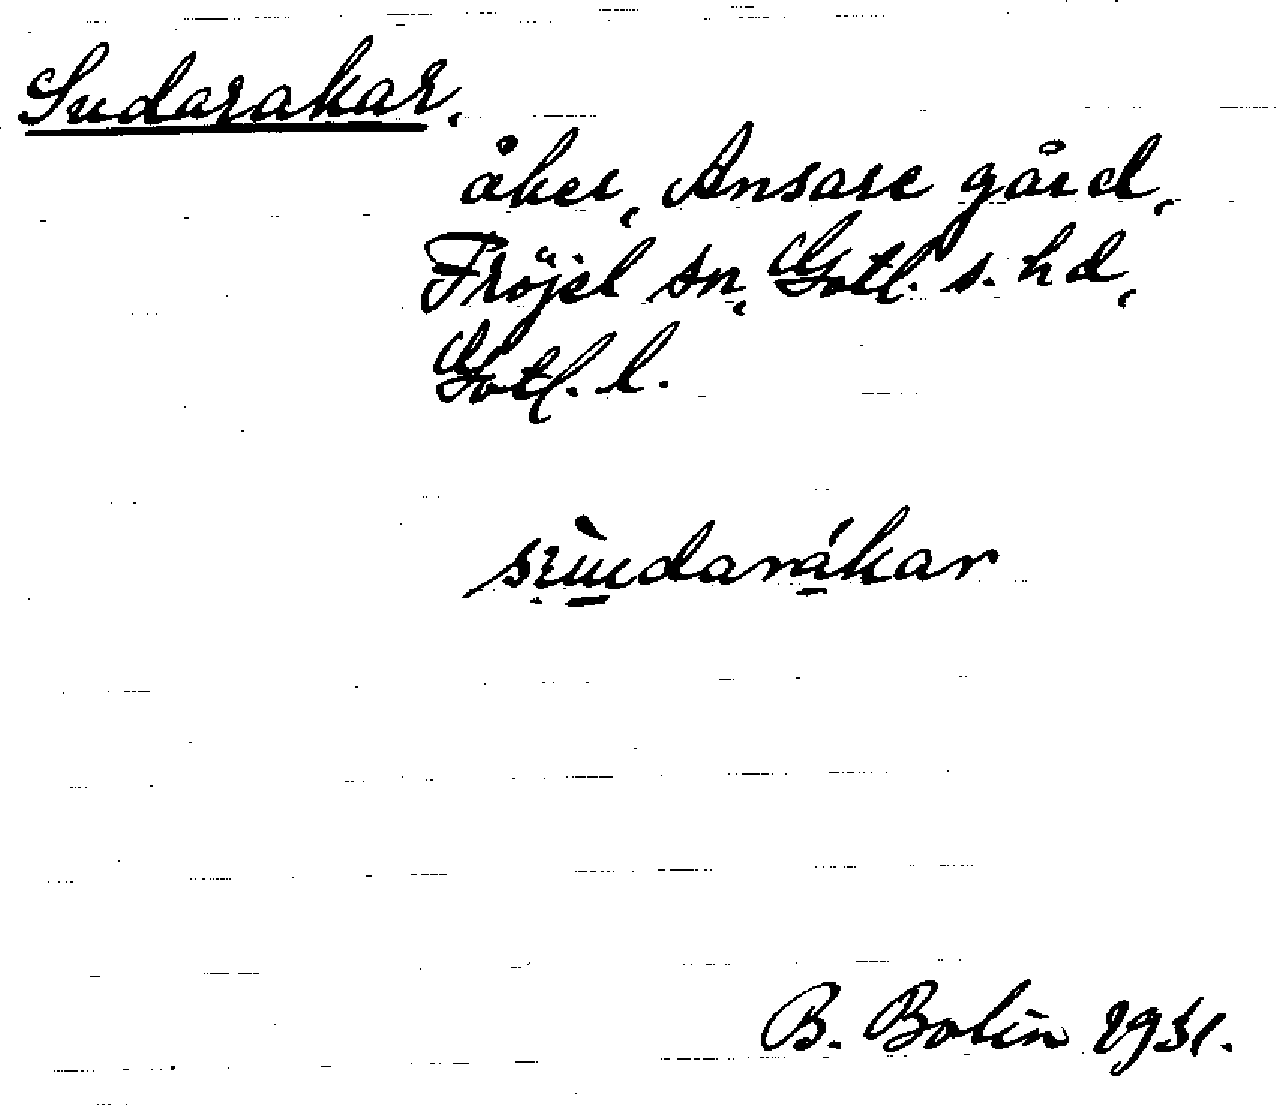 Sudarakar,
åker, Ansare gård,
Fröjel sn, Gotl. s. hd,
Gotl. l.
B. Bolin 1931.